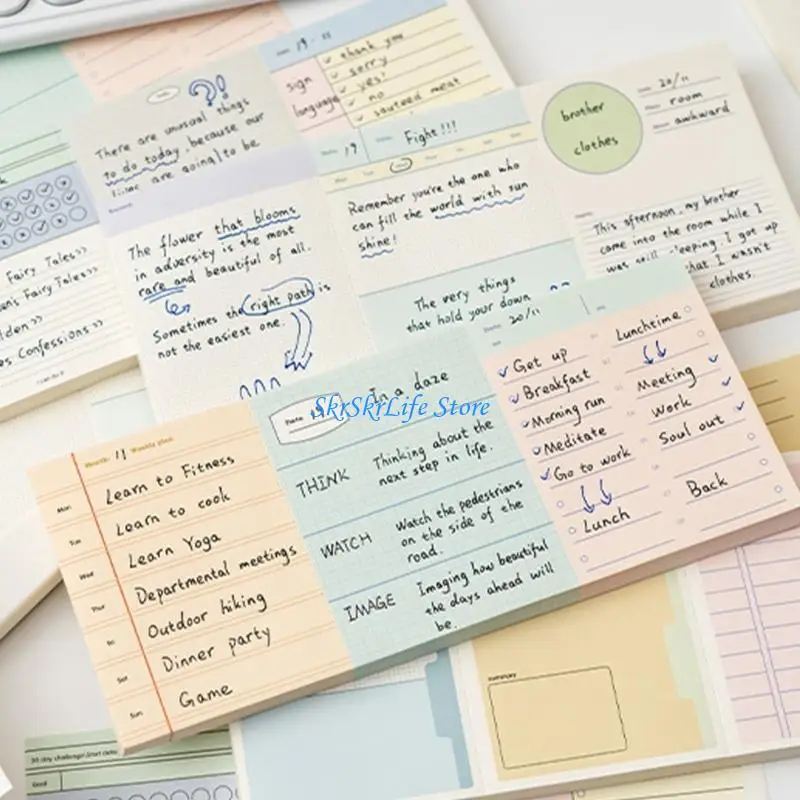 19-11
sign
language
thank you
sorry
yes!
no
sauteed meat
There are unusual things
to do today, because our
are going to be
The flower that blooms
in adversity is the most
rare and beautiful of all.
Sometimes the right path is
not the easiest one.
19
Fight!!!
Remember you're the one who
can fill the world with sun
shine!
The very things
that hold your down
brother
clothes
20/11
room
awkward
This afternoon, my brother
came into the room while I
was still sleeping. I got up
that I wasn't
clothes.
Fairy Tales>>
Fairy Tales>>
Confessions>>
SkrSkrLife Store
Month: 11 Weekly plan
Mon
Learn to Fitness
Tue
Learn to cook
Wed
Learn Yoga
Thur
Departmental meetings
Fri
Outdoor hiking
Sat
Dinner party
Sun
Game
Date: 19
In a daze
THINK
Thinking about the
next step in life.
WATCH
Watch the pedestrians
on the side of the
road.
IMAGE
Imaging how beautiful
the days ahead will
be.
20/11
Get up
Breakfast
Morning run
Meditate
Go to work
Lunch
Lunchtime
Meeting
Work
Soul out
Back
summary
30 day challenge/Start date
Goal